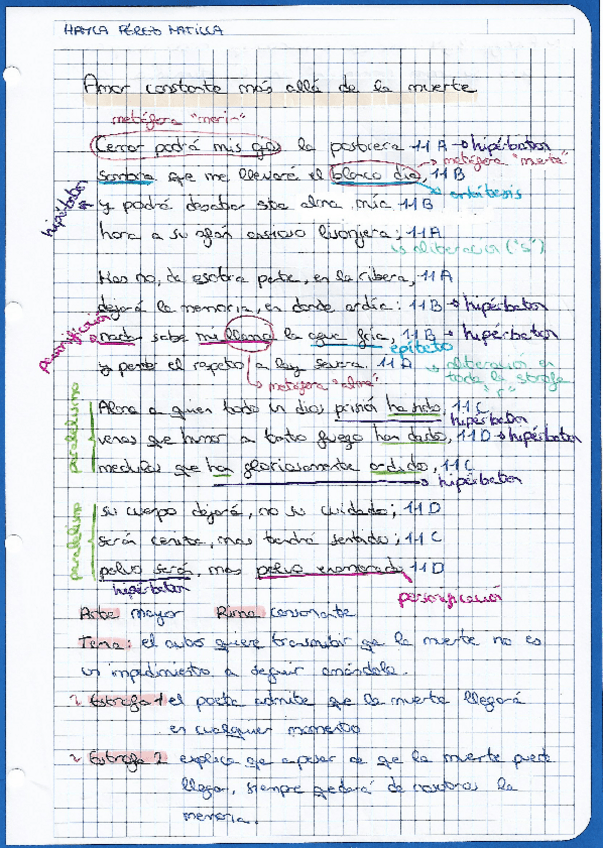 HAYLA PÉREZ MATILLA
Amor constante más allá de la muerte
metáfora "morir"
Cerrar podrá mis ojos la postrera 11A → hipérbaton
metáfora "muerte"
sombra que me llevará el blanco día, 11B
antítesis
hipérbaton
y podrá desatar esta alma mía 11B
hora a su afán ansioso lisonjera; 11A
aliteración ("s")
Mas no, de esotra parte, en la ribera, 11A
dejará la memoria, en donde ardía: 11B → hipérbaton
personificación
nadar sabe mi llama la agua fría, 11B → hipérbaton
epíteto
y perder el respeto a ley severa. 11A → aliteración en
toda la estrofa
"r"
metáfora "alma"
paralelismo
Alma a quien todo un dios prisión ha sido, 11C
hipérbaton
venas que humor a tanto fuego han dado, 11D → hipérbaton
medulas que han gloriosamente ardido, 11C
→ hipérbaton
paralelismo
su cuerpo dejará, no su cuidado; 11D
serán ceniza, mas tendrá sentido; 11C
polvo serán, mas polvo enamorado 11D
hipérbaton
personificación
Arte mayor Rima consonante
Tema: el autor quiere transmitir que la muerte no es
un impedimento a seguir amándola.
Estrofa 1 el poeta admite que la muerte llegará
en cualquier momento
Estrofa 2 explica que a pesar de que la muerte puede
llegar, siempre quedará de nosotros la
memoria.